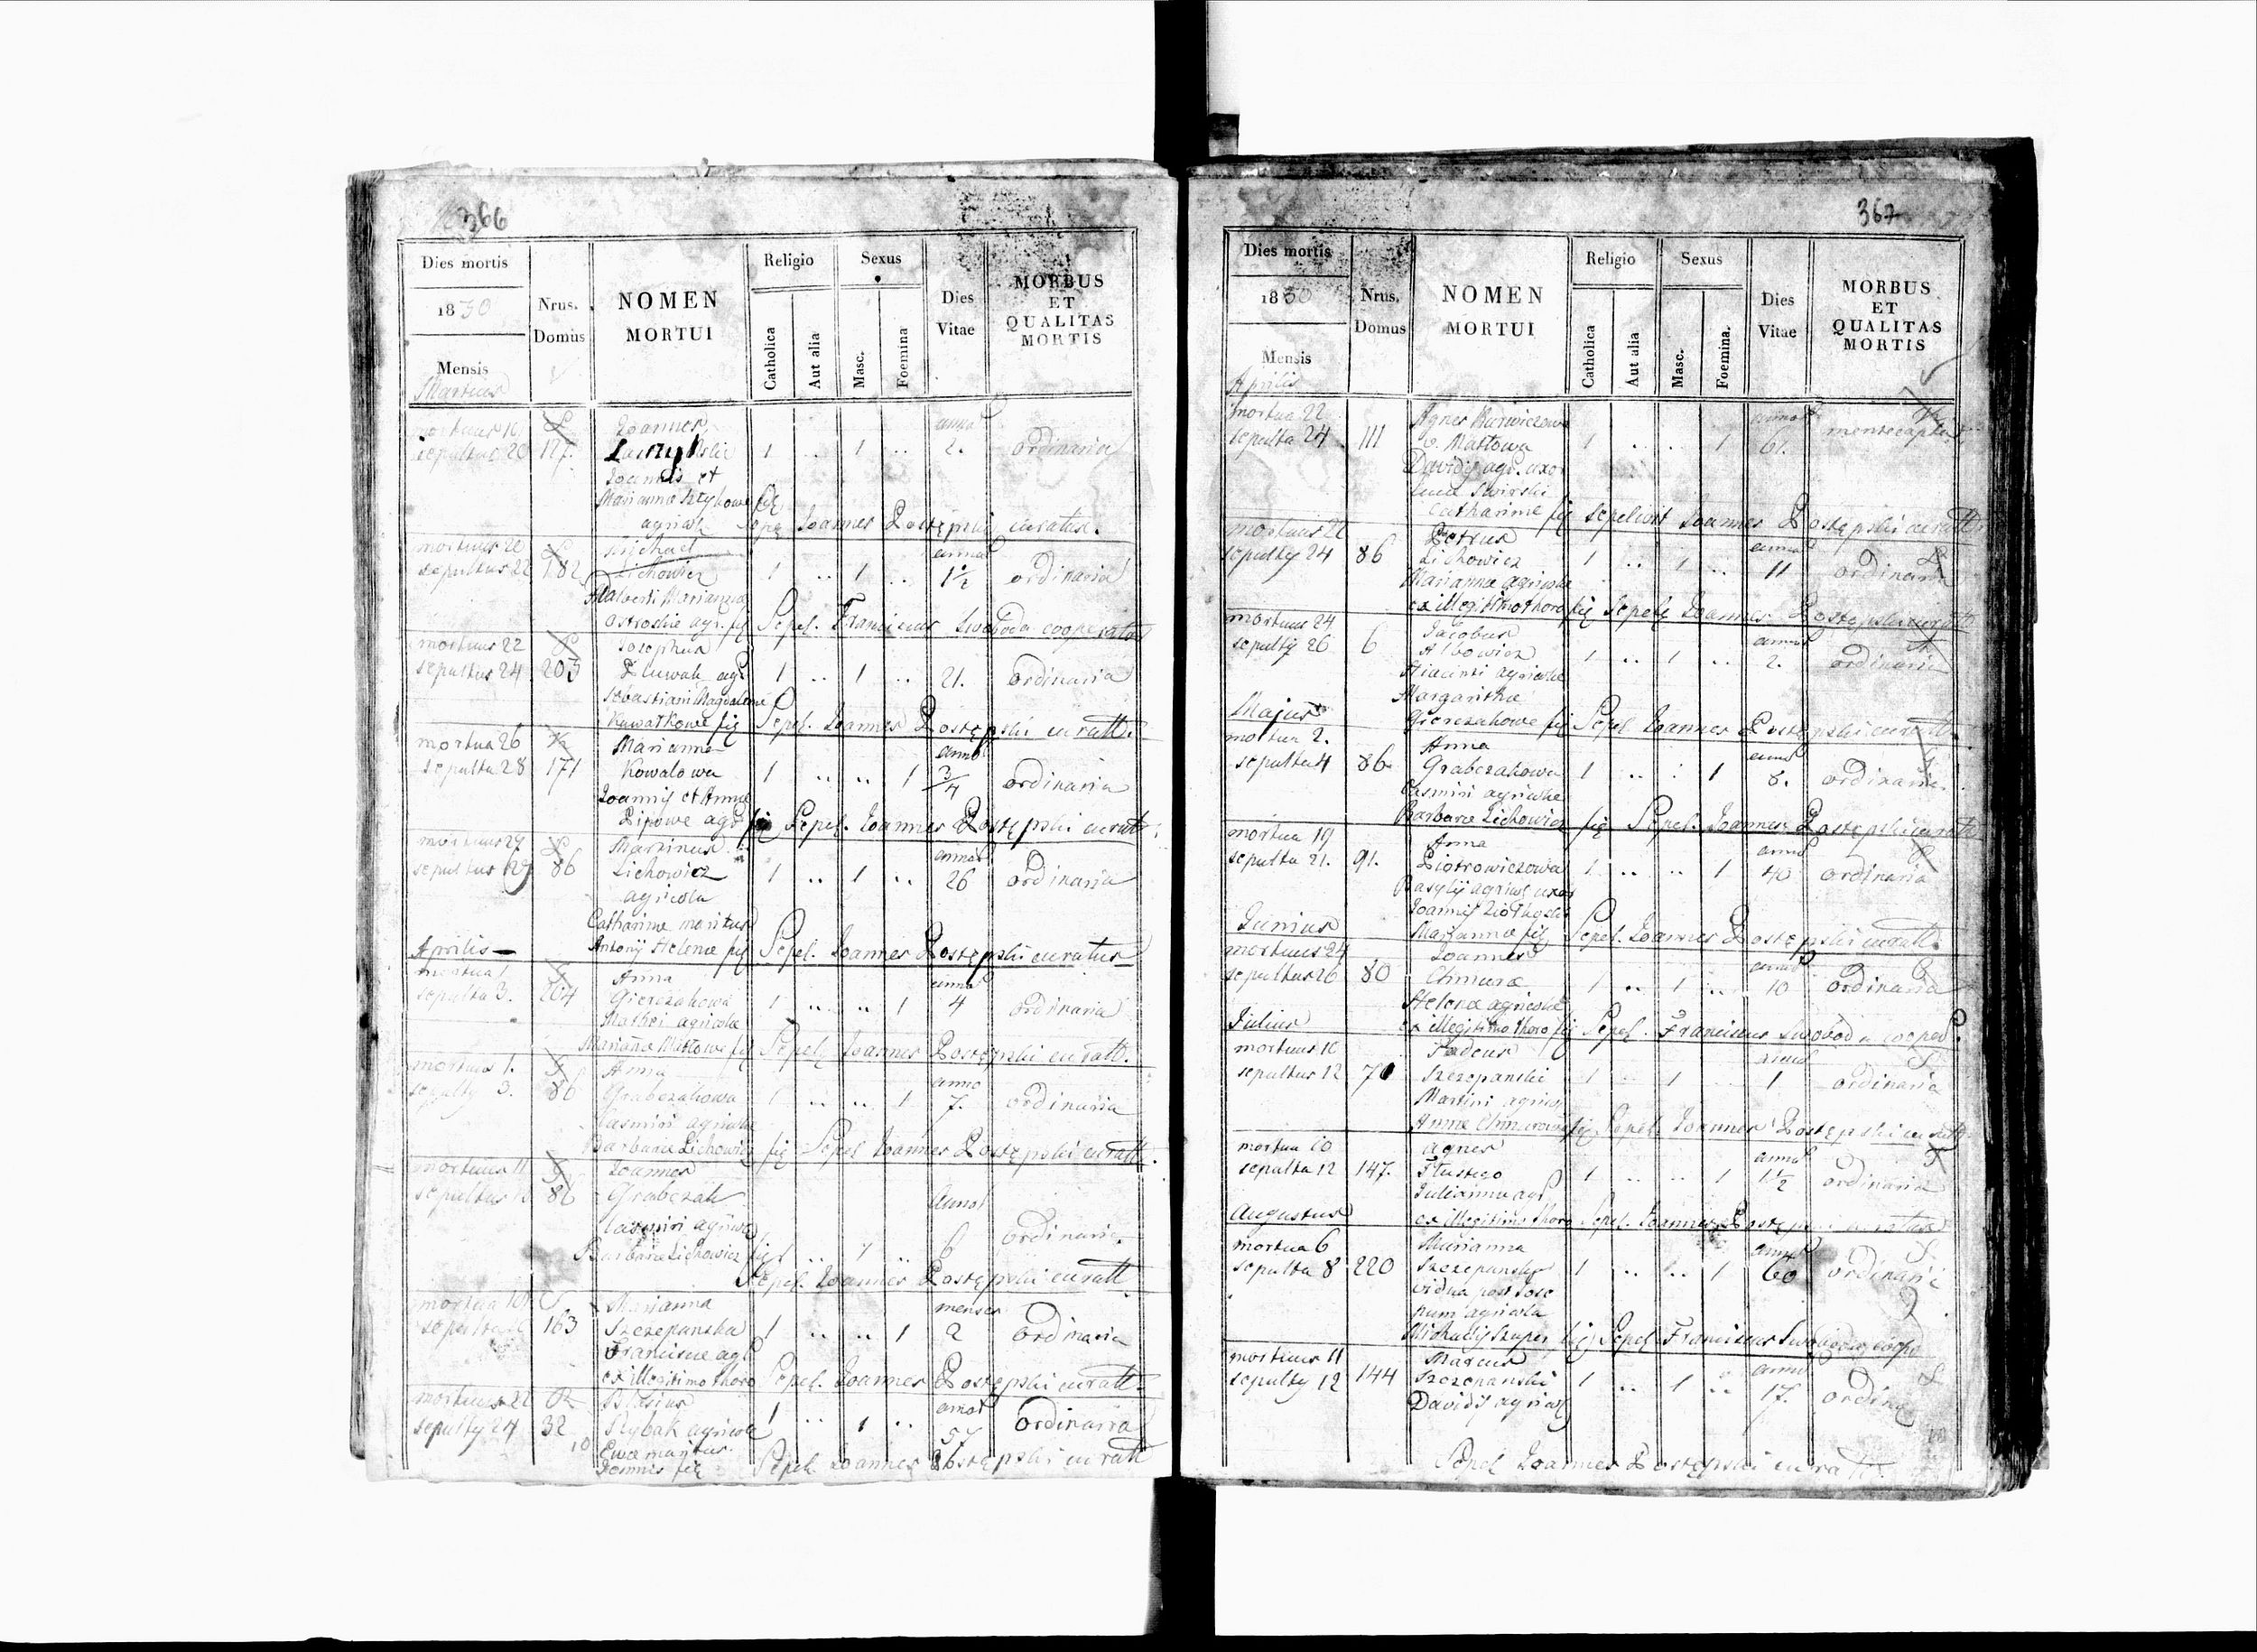 366
Dies mortis
1830
Mensis
Martius
Nrus.
Domus
NOMEN
MORTUI
Religio
Catholica
Aut alia
Sexus
Masc.
Foemina
Dies
Vitae
MORBUS
ET
QUALITAS
MORTIS
mortuus 18
sepultus 20
127
Joannes
Joannis et
Mariannae
agricolae
1 .. 1 ..
anno
2.
ordinaria
Joannes Postępski curatus.
mortuus 20
sepultus 22
182
Michael
Lichowicz
Adalberti Mariannae
agr. fil
1 .. 1 ..
anno
1½
ordinaria
Sepel. Franciscus Swoboda cooperator
mortuus 22
sepultus 24
203
Josephus
agr.
Sebastiani Magdalenae
Kuwałkowe fil
1 .. 1 ..
21.
ordinaria
Sepel. Joannes Postępski curatt.
mortua 26
sepulta 28
171
Marianna
Kowalowa
Joannis et Annae
Lipowe agr fil
1 .. .. 1
anno
3/4
ordinaria
Sepel. Joannes Postępski curatt.
mortuus 27
sepultus 29
86
Martinus
Lichowicz
agricola
Catharinae maritus
Antonii Helenae fil
1 .. 1 ..
annos
26
ordinaria
Sepel. Joannes Postępski curatus
Aprilis
mortua 1.
sepulta 3.
204
Anna
Gierczakowa
Mathei agricolae
Mariannae Matłowe fil
1 .. .. 1
anno
4
ordinaria
Sepel. Joannes Postępski curatt.
mortua 1.
3.
86
Anna
Grabczakowa
Casmiri agricolae
Barbarae Lichowicz fil
1 .. .. 1
anno
7.
ordinaria
Sepel Joannes Postępski curatt.
mortuus 11
sepultus
86
Joannes
Grabczak
Casmiri agricolae
Barbarae Lichowicz fil
.. 1 ..
Anno
6
ordinaria
Sepel. Joannes Postępski curatt
mortua
163
Marianna
Szczepanska
Franciscae agr
ex illegitimo thoro
1 .. .. 1
menses
2
Ordinaria
Sepel. Joannes Postępski curatt.
mortuus 22
sepultus 24
32
10
Blasius
Rybak agricola
Ewae maritus
Joannis fil
1 .. 1 ..
annos
57
Ordinaria
Sepel. Joannes Postępski curatt
367
Dies mortis
1830
Mensis
Aprilis
Nrus.
Domus
NOMEN
MORTUI
Religio
Catholica
Aut alia
Sexus
Masc.
Foemina.
Dies
Vitae
MORBUS
ET
QUALITAS
MORTIS
mortua 22
sepulta 24
111
Agnes
v. Matłowa
Davidis agr. uxor
Lucae Swirski
Catharinae fil
1 .. .. 1
annos
61.
mentecapta
sepelivit Joannes Postępski curatt
mortuus 22
sepultus 24
86
Petrus
Lichowicz
Mariannae agricolae
ex illegitimo thoro fil
1 .. 1 ..
annos
11
ordinaria
Sepel Joannes Postępski curatt
mortuus 24
sepultus 26
6
Jacobus
Albowicz
Hiacinti agricolae
Margarithae
Gierczakowe fil
1 .. 1 ..
annos
2.
ordinaria
Sepel Joannes Postępski curatt.
Majus
mortua 2.
sepulta 4
86
Anna
Grabczakowa
Casmiri agricolae
Barbarae Lichowicz fil
1 .. .. 1
annos
8.
ordinaria.
Sepel. Joannes Postępski curatt
mortua 19
sepulta 21.
91.
Anna
Piotrowiczowa
Basylii agricolae uxor
Joannis
Mariannae fil
1 .. .. 1
annos
40
ordinaria
Sepel. Joannes Postępski curatt.
Junius
mortuus 24
sepultus 26
80
Joannes
Chmura
Helenae agricolae
ex illegitimo thoro fil
1 .. 1 ..
annos
10
Ordinaria
Sepel. Franciscus Swoboda cooper.
Julius
mortuus 10
sepultus 12
70
Tadeus
Szczepanski
Martini agricolae
Annae fil
1 .. 1 ..
annus
1
ordinaria
Sepel. Joannes Postępski curatt
mortua 10
sepulta 12
147.
Agnes
Julianna agr
ex illegitimo thoro
1 .. .. 1
anno
1½
ordinaria
Sepel. Joannes
Augustus
mortua 6
sepulta 8
220
Marianna
Szczepanska
vidua post
agricola
Michaelis Szuper fil
1 .. .. 1
annos
60
ordinaria
Sepel. Franciscus Swoboda
mortuus 11
sepultus 12
144
Marcus
Szczepanski
Davidis agricolae
1 .. 1 ..
annos
17.
ordina
Sepel Joannes Postępski curatus